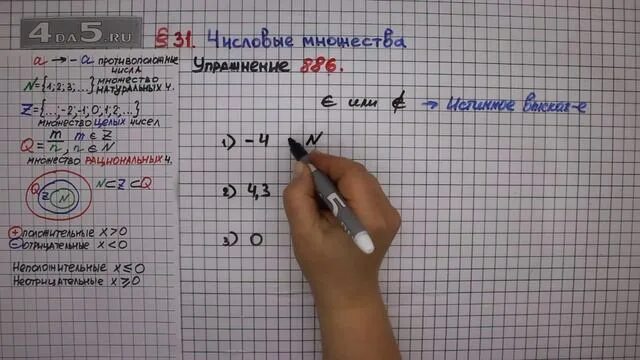 4DA5.RU
§ 31. Числовые множества
Упражнение 886.
a → -a противоположные числа
N={1;2;3;...} множество натуральных ч.
Z={...;-2;-1;0;1;2;...}
множество целых чисел
Q = m/n, m ∈ Z, n ∈ N
множество рациональных ч.
Q Z N
N ⊂ Z ⊂ Q
+ положительные x>0
- отрицательные x<0
Неположительные x≤0
Неотрицательные x≥0
∈ или ∉ → Истинное высказ-е
1) -4 N
2) 4,3
3) 0